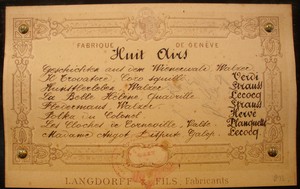 FABRIQUE DE GENÈVE
Huit Airs
Geschichten aus dem Wienerwald Walzer Strauss
Il Trovatore Verdi
Künstlerleben Walzer Strauss
La Belle Hélène Quadrille Strauss
Fledermaus Walzer Strauss
Polka du Colonel Hervé
Les Cloches de Corneville Valse Planquette
Madame Angot Galop Lecocq
LANGDORFF & FILS, Fabricants